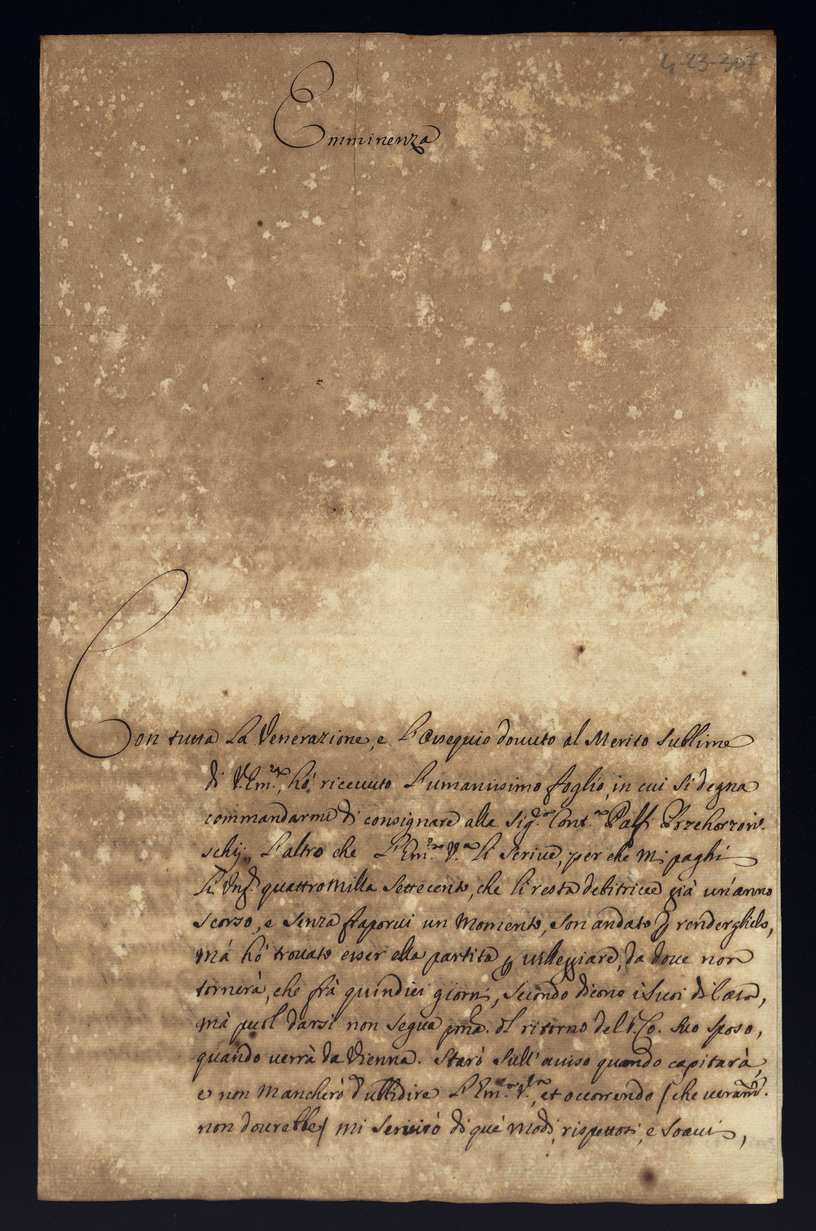 4-23-307
Emminenza
Con tutta La Venerazione, e L'Ossequio douuto al Merito Sublime
di V. Em.za, hò riceuuto L'umanissimo foglio, in cui Si degna
commandarme di consignare alla Sig.ra Cont.sa Palfi
schij, L'altro che L'Em.za V.ra Li Scriue, per che Mi paghi
quattro Milla Settecento, che Li resta debitrice già un'anno
scorso, e Senza fraporui un Momento, Son andato p renderglielo,
Mà hò trouato esser ella partita p uilleggiare, da doue non
tornerà, che frà quindici giorni, Secondo dicono i Suoi di Casa,
Mà puol darsi non Segua pma. del ritorno del Co. Suo Sposo,
quando uerrà da Vienna. Starò Sull'auiso quando capitarà,
e non Mancherò d'ubbidire L'Em.za V.ra, et occorrendo / che ueram.te
non dourebbe / mi Seruirò di què Modi, rispettosi, e Soaui,